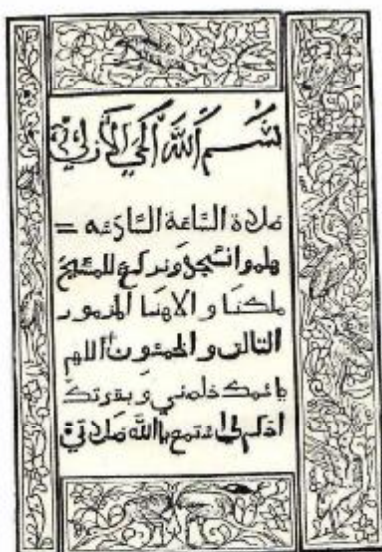 بسم الله الحي الأزلي
صلاة الساعة السادسه =
هلموا نسجد ونركع للمسيح
ملكنا والاهنا المزمور
التالت والخمسون اللهم
باسمك خلصني وبقوتك
احكم لي استمع يا الله صلاتي